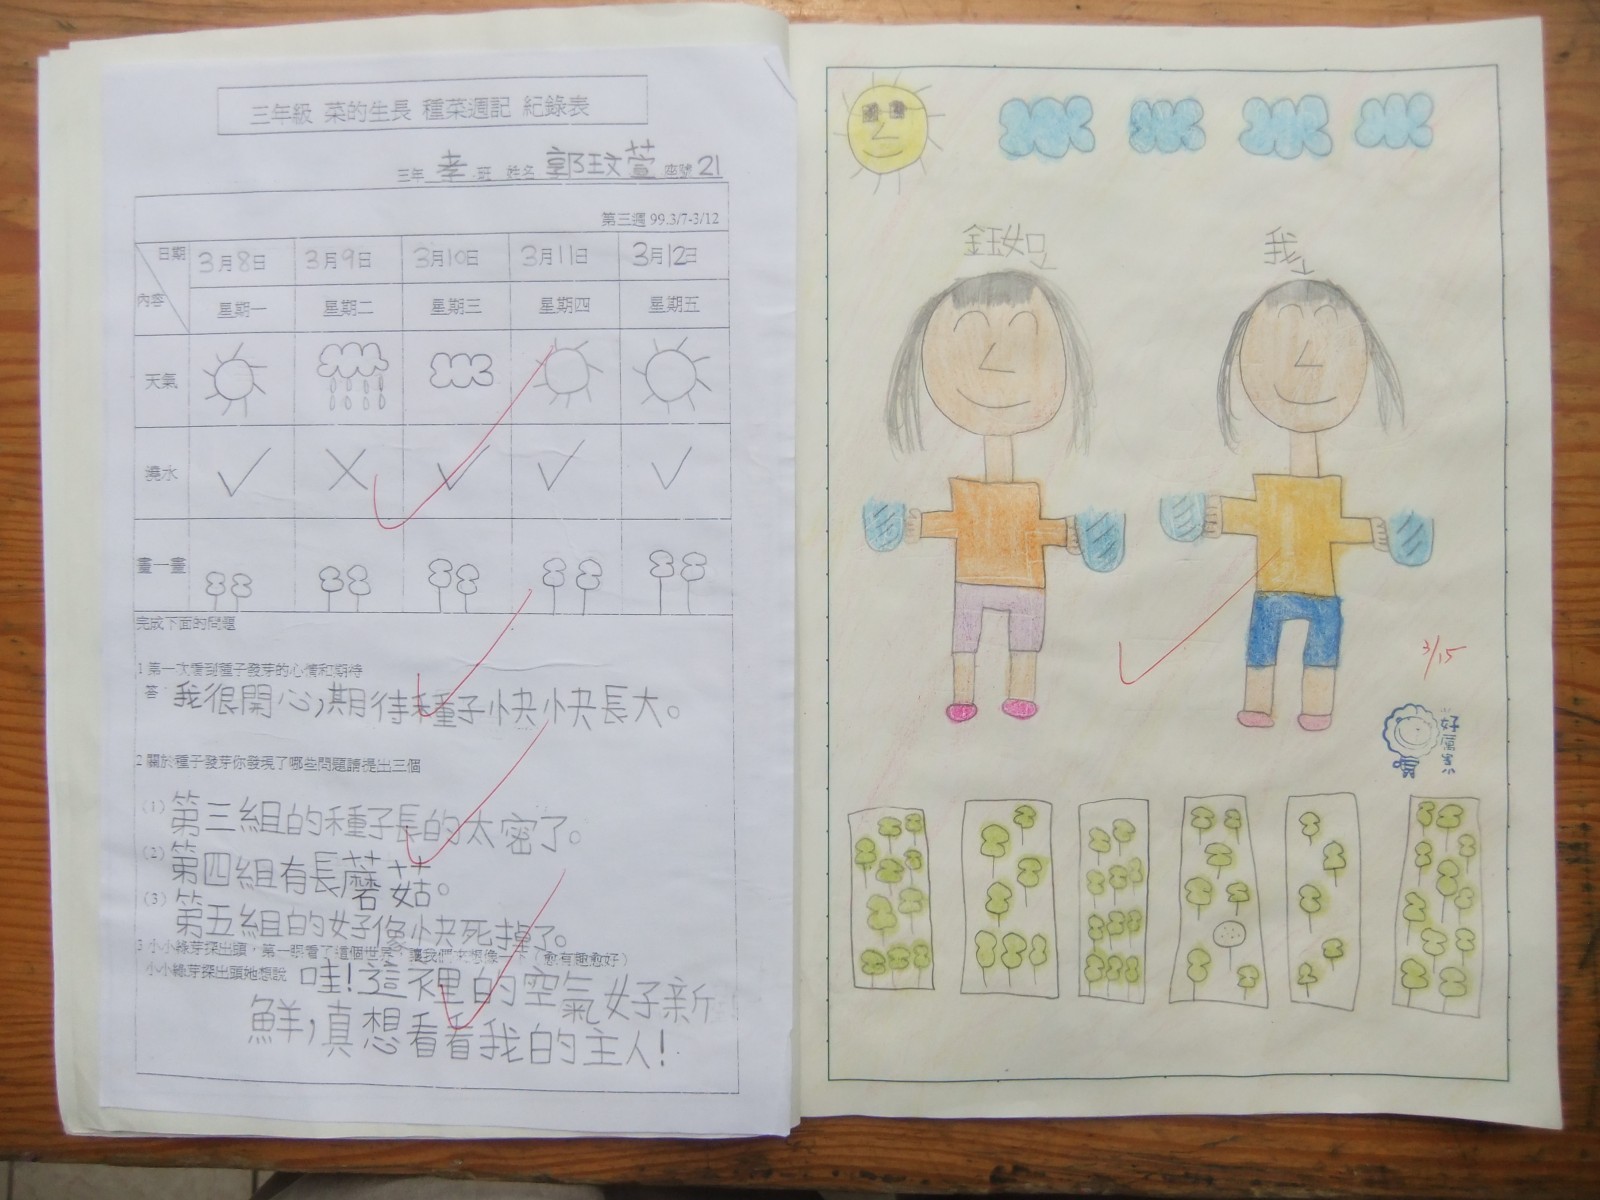 三年級 菜的生長 種菜週記 紀錄表
三年 孝 班 姓名 郭玟萱 座號 21
第三週 99.3/7-3/12
日期 3月8日 3月9日 3月10日 3月11日 3月12日
內容 星期一 星期二 星期三 星期四 星期五
天氣
澆水
畫一畫
完成下面的問題
1 第一次看到種子發芽的心情和期待
答 我很開心,期待種子快快長大。
2 關於種子發芽你發現了哪些問題請提出三個
(1) 第三組的種子長的太密了。
(2) 第四組有長蘑菇。
(3) 第五組的好像快死掉了。
3 小小綠芽探出頭,第一眼看了這個世界,讓我們來想像一下(愈有趣愈好)
小小綠芽探出頭她想說 哇!這裡的空氣好新
鮮,真想看看我的主人!
鈺如
我
3/15
好厲害